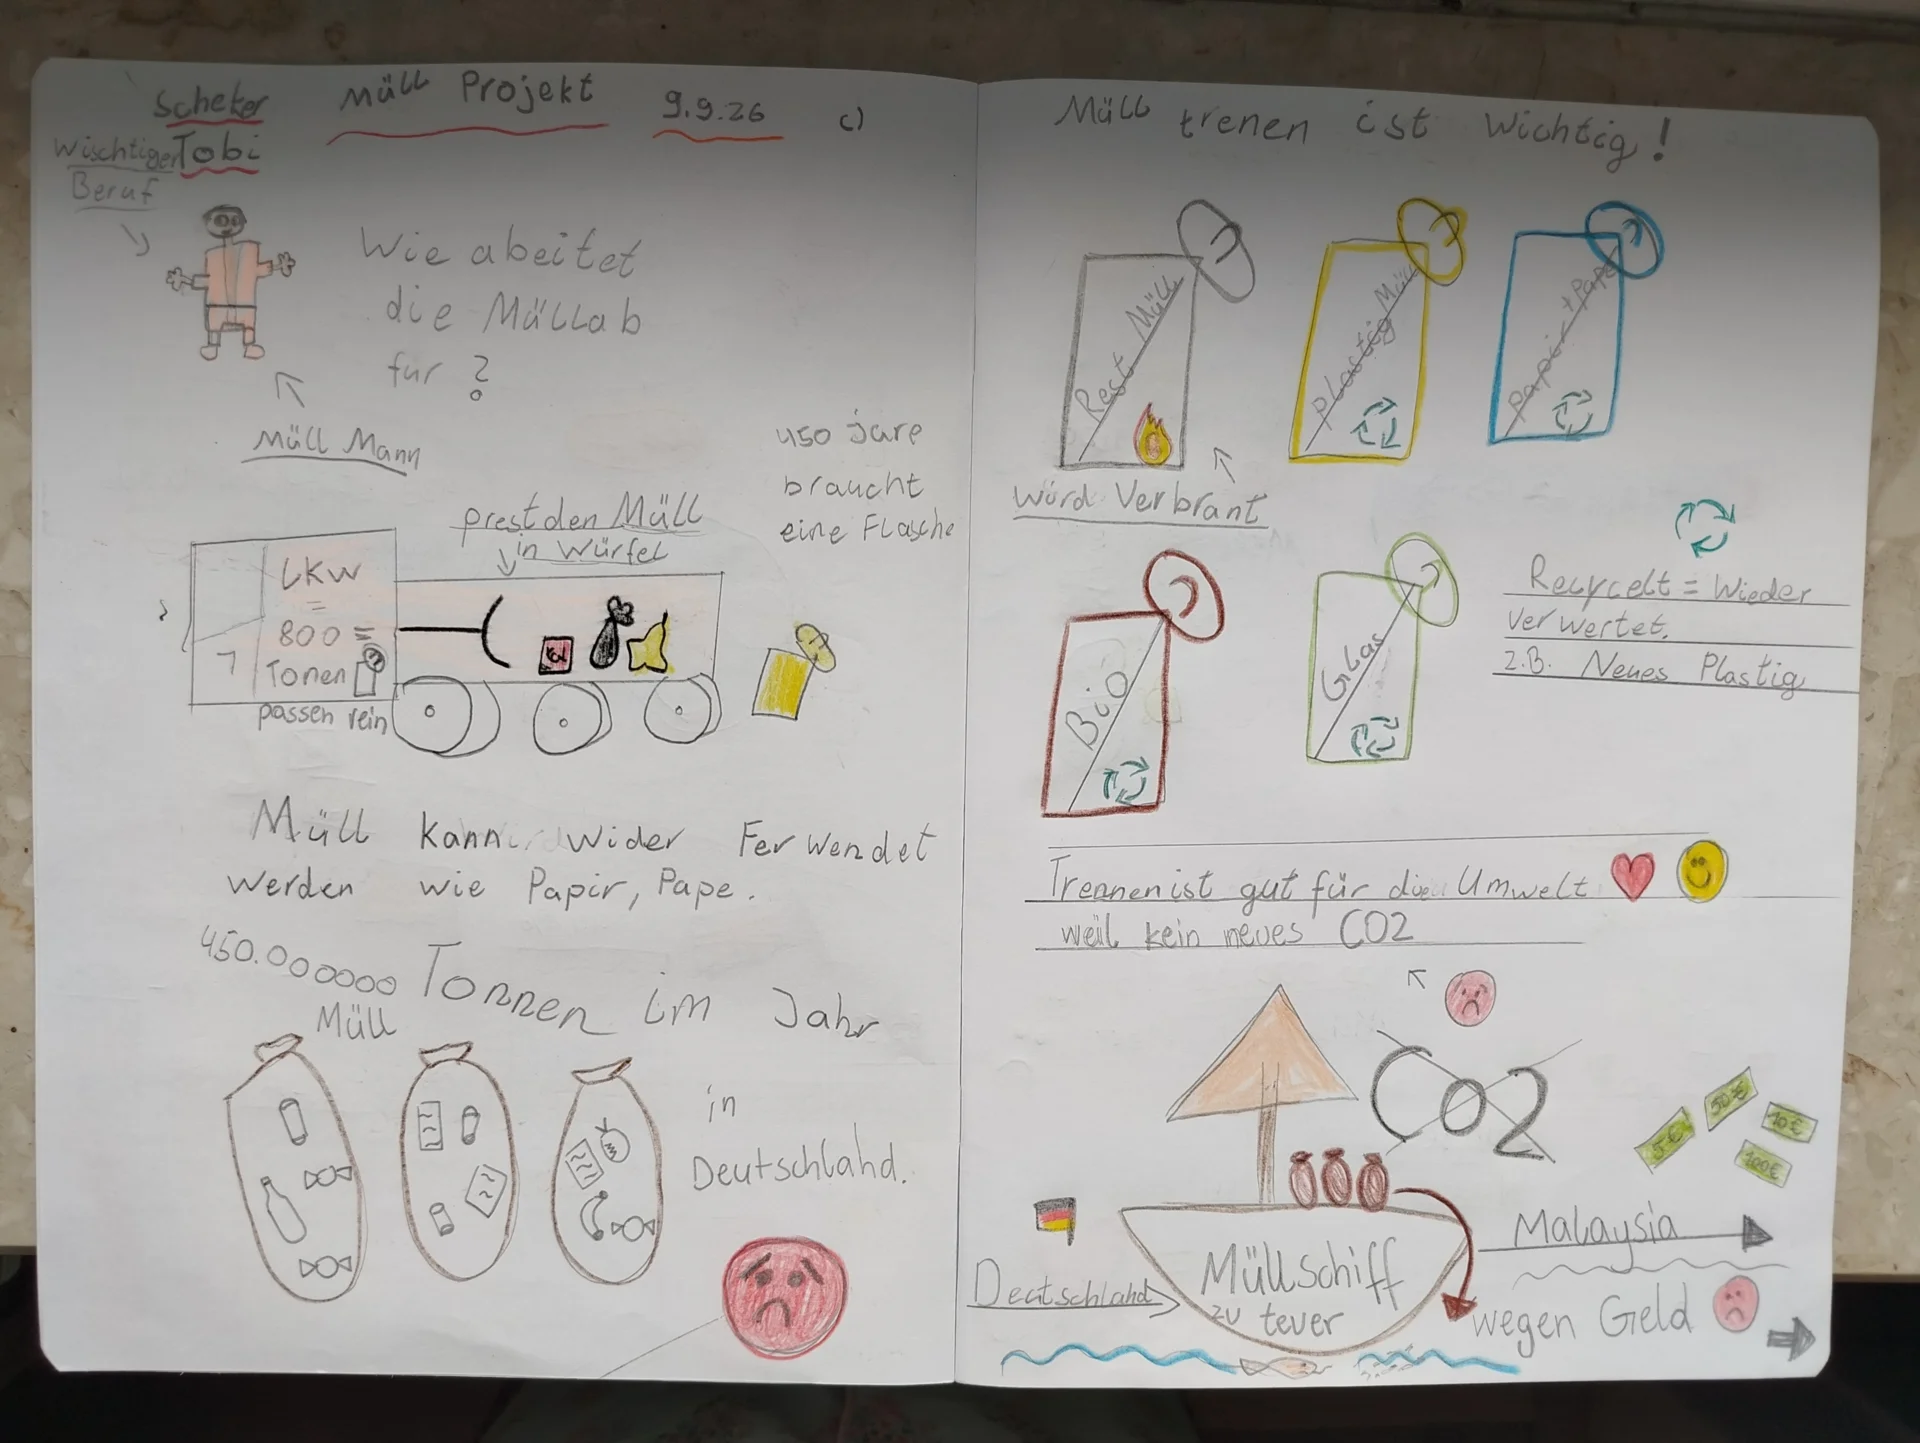 Scheker
Tobi
Müll Projekt
9.9.26
c)
Wischtiger
Beruf
Wie abeitet
die Müllab
fur ?
Müll Mann
450 jare
braucht
eine Flasche
prest den Müll
in Würfel
LKW
=
800 =
Tonen
passen rein
Müll kann wider Fer wendet
werden wie Papir, Pape.
450.000000 Tonnen im Jahr
Müll
in
Deutschland.
Müll trenen ist Wichtig!
Rest Müll
Plastig Müll
Papir + Pape
würd Verbrant
Bio
Glas
Recycelt = Wieder
Verwertet.
Z.B. Neues Plastig
Trennen ist gut für die Umwelt
weil kein neues CO2
CO2
5€
50€
10€
100€
Malaysia
Deutschland
Müllschiff
zu teuer
wegen Geld